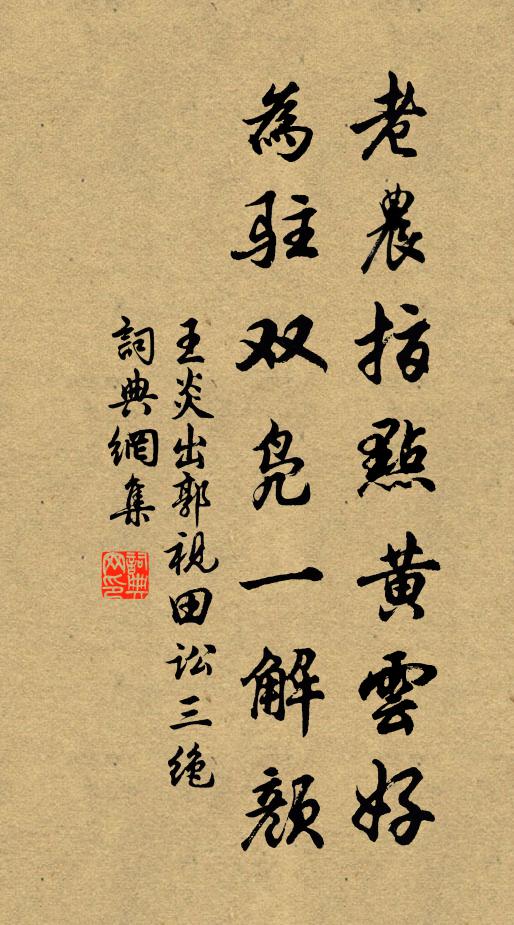 老農指點黃雲好
為駐双凫一解顏
王炎出郭視田讼三绝
詞典網集
詞典網印